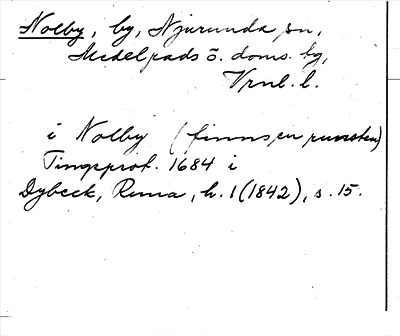 Nolby, by, Njurunda sn,
Medelpads ö. doms. tg,
Vrnl. l.
i Nolby (finns en runsten)
Tingsprot. 1684 i
Dybeck, Runa, h. 1 (1842), s. 15.